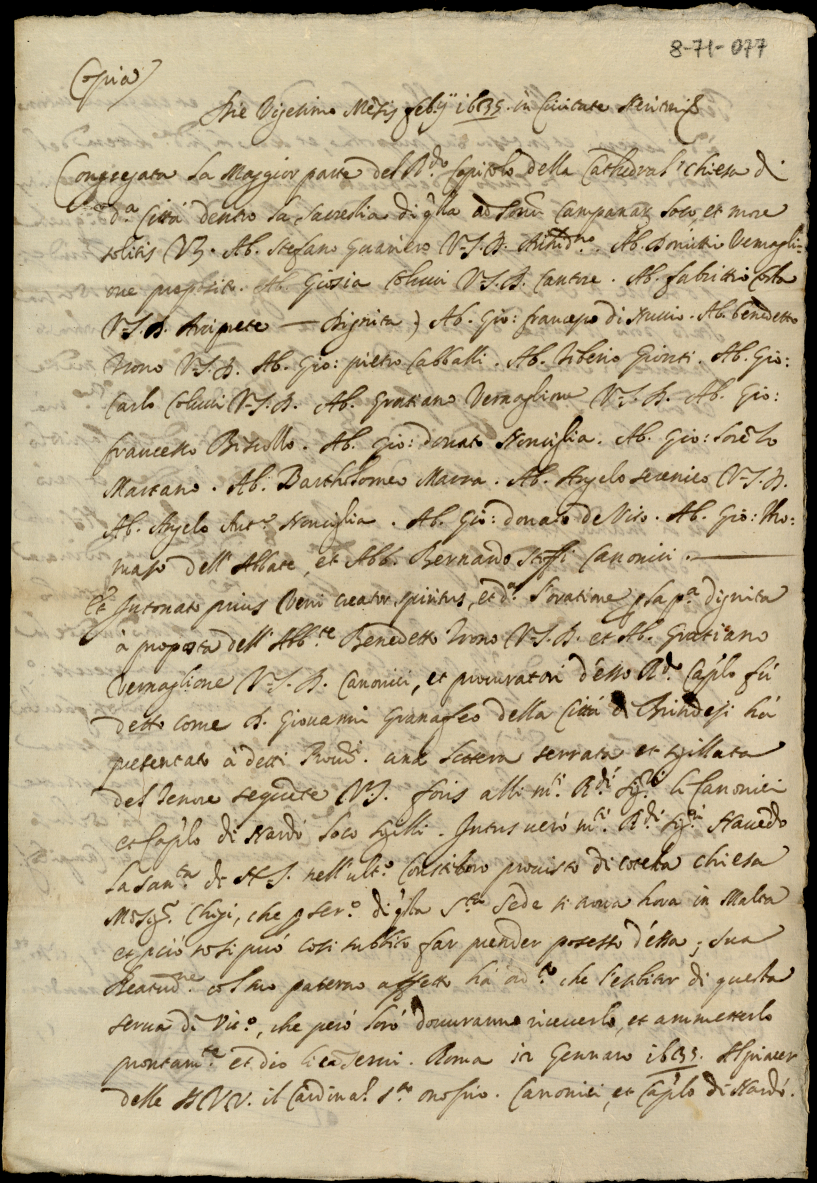 8-71-077
Copia
Die Vigesimo Mensis feb.ij 1635. in Civitate Neritni
Congregata la Maggior parte del R.do Capitolo della Cathedral chiesa di
d.a Città dentro la Sacrestia di q.lla ad sonū campanae, loco, et more
solitis Ab. Stefano Guarriero V.J.D. Ab. Donato Vernagli=
one Ab. Giosia Colucci V.J.D. Cantore. Ab. fabritio Costa
V.J.D. Arciprete — Dignità) Ab. Gio: francesco di Nuccio. Ab. benedetto
Trono V.J.D. Ab. Gio: pietro Caballi. Ab. Tiberio Gionti. Ab. Gio:
Carlo Colucci V.J.D. Ab. Gratiano Vernaglione V.J.D. Ab. Gio:
francesco Ab. Gio: donato Nonciglia. Ab. Gio: Lorēzo
Martano. Ab. Bartholomeo Maura. Ab. Angelo V.J.D.
Ab. Angelo Ant.o Nonciglia. Ab. Gio: donato de Vito. Ab. Gio: Tho:
maso dell'Abbate, et Abb. Bernardo Canonici.
Intonato prius Veni creator spiritus, et d.a l'oratione p la p.a dignità
à proposta dell'Abb.te Benedetto Trono V.J.D. et Ab. Gratiano
Vernaglione V.J.D. Canonici, et procuratori d'esso R.do Cap.lo fù
detto come D. Giovanni Granafeo della Città di Brindesi hà
presentato à detti una lettera serrata et sigillata
del tenore seguēte V.J. foris alli m.ti R.di Sig.ri li Canonici
et Cap.lo di Nardò loco sigilli. Intus verò m.ti R.di Sig.ri Havēdo
la San.tà di N.S. nell'ult.o Consistoro provisto di cotesta chiesa
Mōsig.r Chigi, che p ser.o di q.lla S.ta Sede si trova hora in Malta
et p ciò nō si può così subbito far prender possesso d'essa; sua
Beatud.ne col suo paterno affetto hà che l'esibitor di questa
serva di Vic.o, che però loro doveranno riceverlo, et ammetterlo
prontam.te et dio li cōservi. Roma 12 Gennaro 1635. Al piacer
delle SS VV. il Cardinal S.to onofrio. Canonici, et Cap.lo di Nardò.